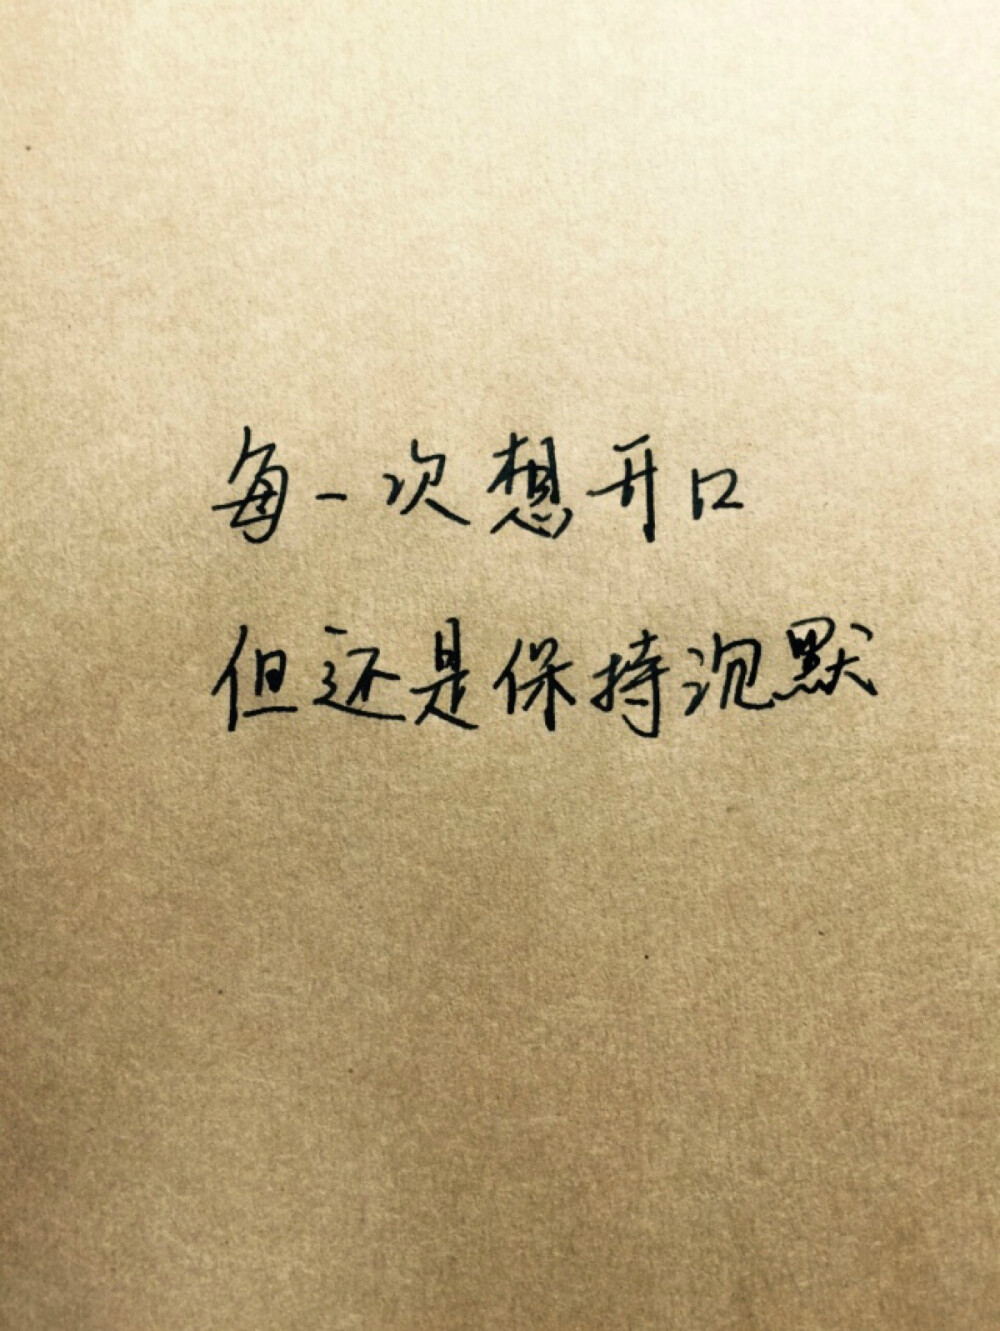 每一次想开口
但还是保持沉默